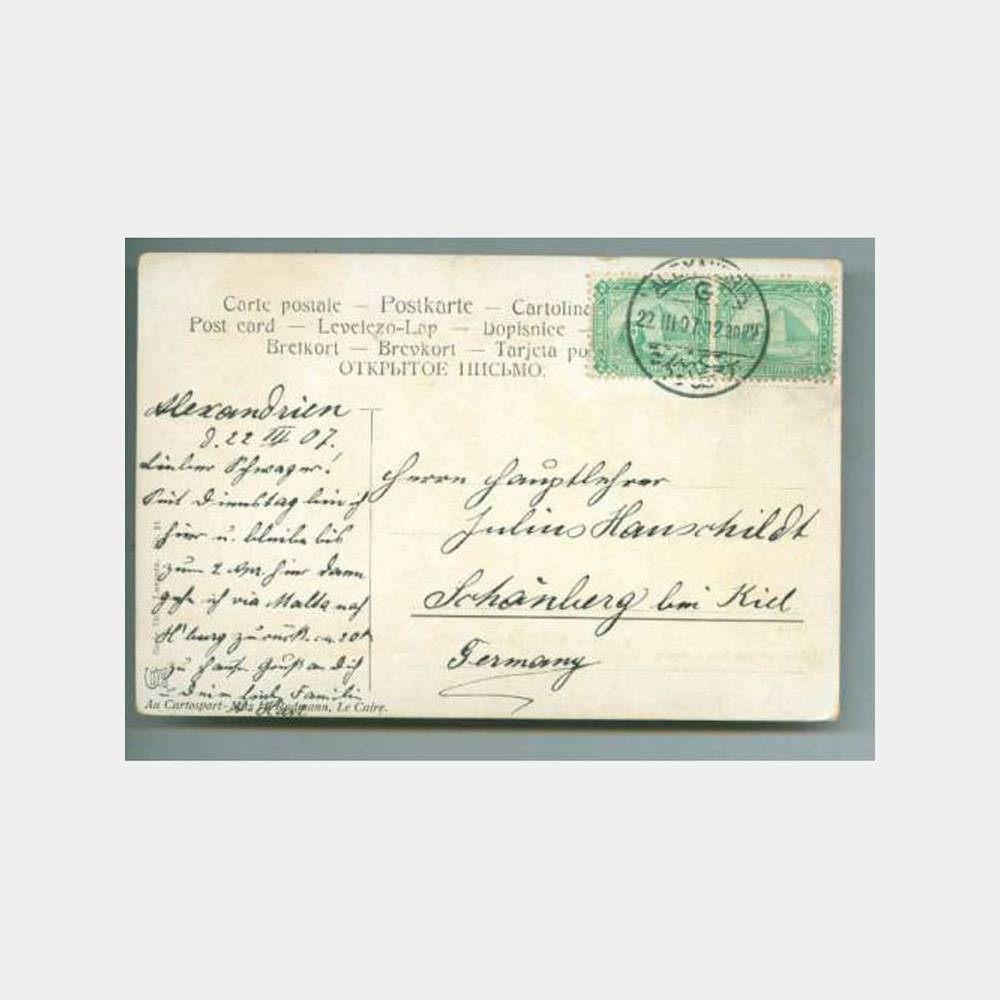 Carte postale — Postkarte — Cartolina
Post card — Levelezo-Lap — Dopisnice —
Bretkort — Brevkort — Tarjeta po
ОТКРЫТОЕ ПИСЬМО.
ALEXANDRIA
G
22 III 07 12 30 PM
Alexandrien
d. 22 III 07.
Lieber Schwager!
Seit Dienstag bin ich
hier u. bleibe bis
zum 2 Apr. hier dann
gehe ich via Malta nach
H'burg zurück.
zu Hause Gruß an Dich
u Deine liebe Familie
Herrn Hauptlehrer
Julius Hauschildt
Schönberg bei Kiel
Germany
Au Cartosport - Max H. Rudmann, Le Caire.